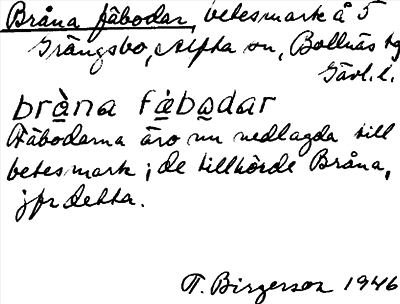 Bråna fäbodar, betesmark å 5
Grängsbo, Alfta sn, Bollnäs tg
Gävl. l.
bråna fäbodar
Fäbodarna äro nu nedlagda till
betesmark; de tillhörde Bråna,
jfr detta.
T. Birgerson 1946